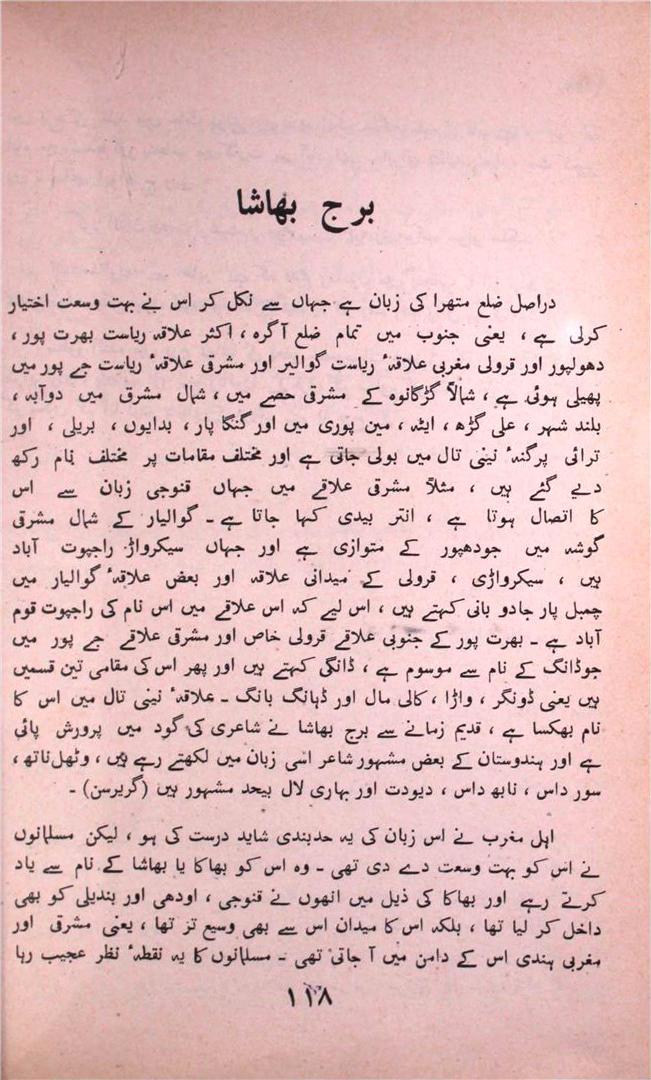 برج بھاشا
دراصل ضلع متھرا کی زبان ہے جہاں سے نکل کر اس نے بہت وسعت اختیار
کرلی ہے ، یعنی جنوب میں تمام ضلع آگرہ ، اکثر علاقہ ریاست بھرت پور ،
دھولپور اور قرولی مغربی علاقۂ ریاست گوالیر اور مشرقی علاقۂ ریاست جے پور میں
پھیلی ہوئی ہے ، شمالاً گڑگانوہ کے مشرقی حصے میں ، شمال مشرق میں دوآبہ ،
بلند شہر ، علی گڑھ ، ایٹہ ، مین پوری میں اور گنگا پار ، بدایوں ، بریلی ، اور
ترائی پرگنۂ نینی تال میں بولی جاتی ہے اور مختلف مقامات پر مختلف نام رکھ
دیے گئے ہیں ، مثلاً مشرقی علاقے میں جہاں قنوجی زبان سے اس
کا اتصال ہوتا ہے ، انتر بیدی کہا جاتا ہے ۔ گوالیار کے شمال مشرقی
گوشہ میں جودھپور کے متوازی ہے اور جہاں سیکرواڑ راجپوت آباد
ہیں ، سیکرواڑی ، قرولی کے میدانی علاقہ اور بعض علاقۂ گوالیار میں
چمبل پار جادو بانی کہتے ہیں ، اس لیے کہ اس علاقے میں اس نام کی راجپوت قوم
آباد ہے ۔ بھرت پور کے جنوبی علاقے قرولی خاص اور مشرقی علاقے جے پور میں
جوڈانگ کے نام سے موسوم ہے ، ڈانگی کہتے ہیں اور پھر اس کی مقامی تین قسمیں
ہیں یعنی ڈونگر ، واڑا ، کالی مال اور ڈہانگ بانگ ۔ علاقۂ نینی تال میں اس کا
نام بھکسا ہے ، قدیم زمانے سے برج بھاشا نے شاعری کی گود میں پرورش پائی
ہے اور ہندوستان کے بعض مشہور شاعر اسی زبان میں لکھتے رہے ہیں ، وٹھل ناتھ ،
سور داس ، نابھ داس ، دیودت اور بہاری لال بیحد مشہور ہیں (گریرسن) ۔
اہل مغرب نے اس زبان کی یہ حدبندی شاید درست کی ہو ، لیکن مسلمانوں
نے اس کو بہت وسعت دے دی تھی ۔ وہ اس کو بھاکا یا بھاشا کے نام سے یاد
کرتے رہے اور بھاکا کی ذیل میں انھوں نے قنوجی ، اودھی اور بندیلی کو بھی
داخل کر لیا تھا ، بلکہ اس کا میدان اس سے بھی وسیع تر تھا ، یعنی مشرقی اور
مغربی ہندی اس کے دامن میں آ جاتی تھی ۔ مسلمانوں کا یہ نقطۂ نظر عجیب رہا
۱۱۸